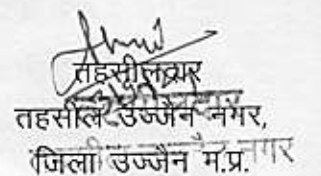 तहसीलदार
तहसील उज्जैन नगर,
जिला उज्जैन म.प्र.